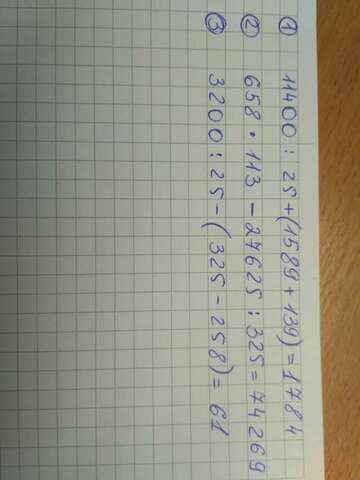 ① 11400 : 25 + (1589 + 139) = 1784
② 658 · 113 - 27625 : 325 = 74269
③ 3200 : 25 - (325 - 258) = 61